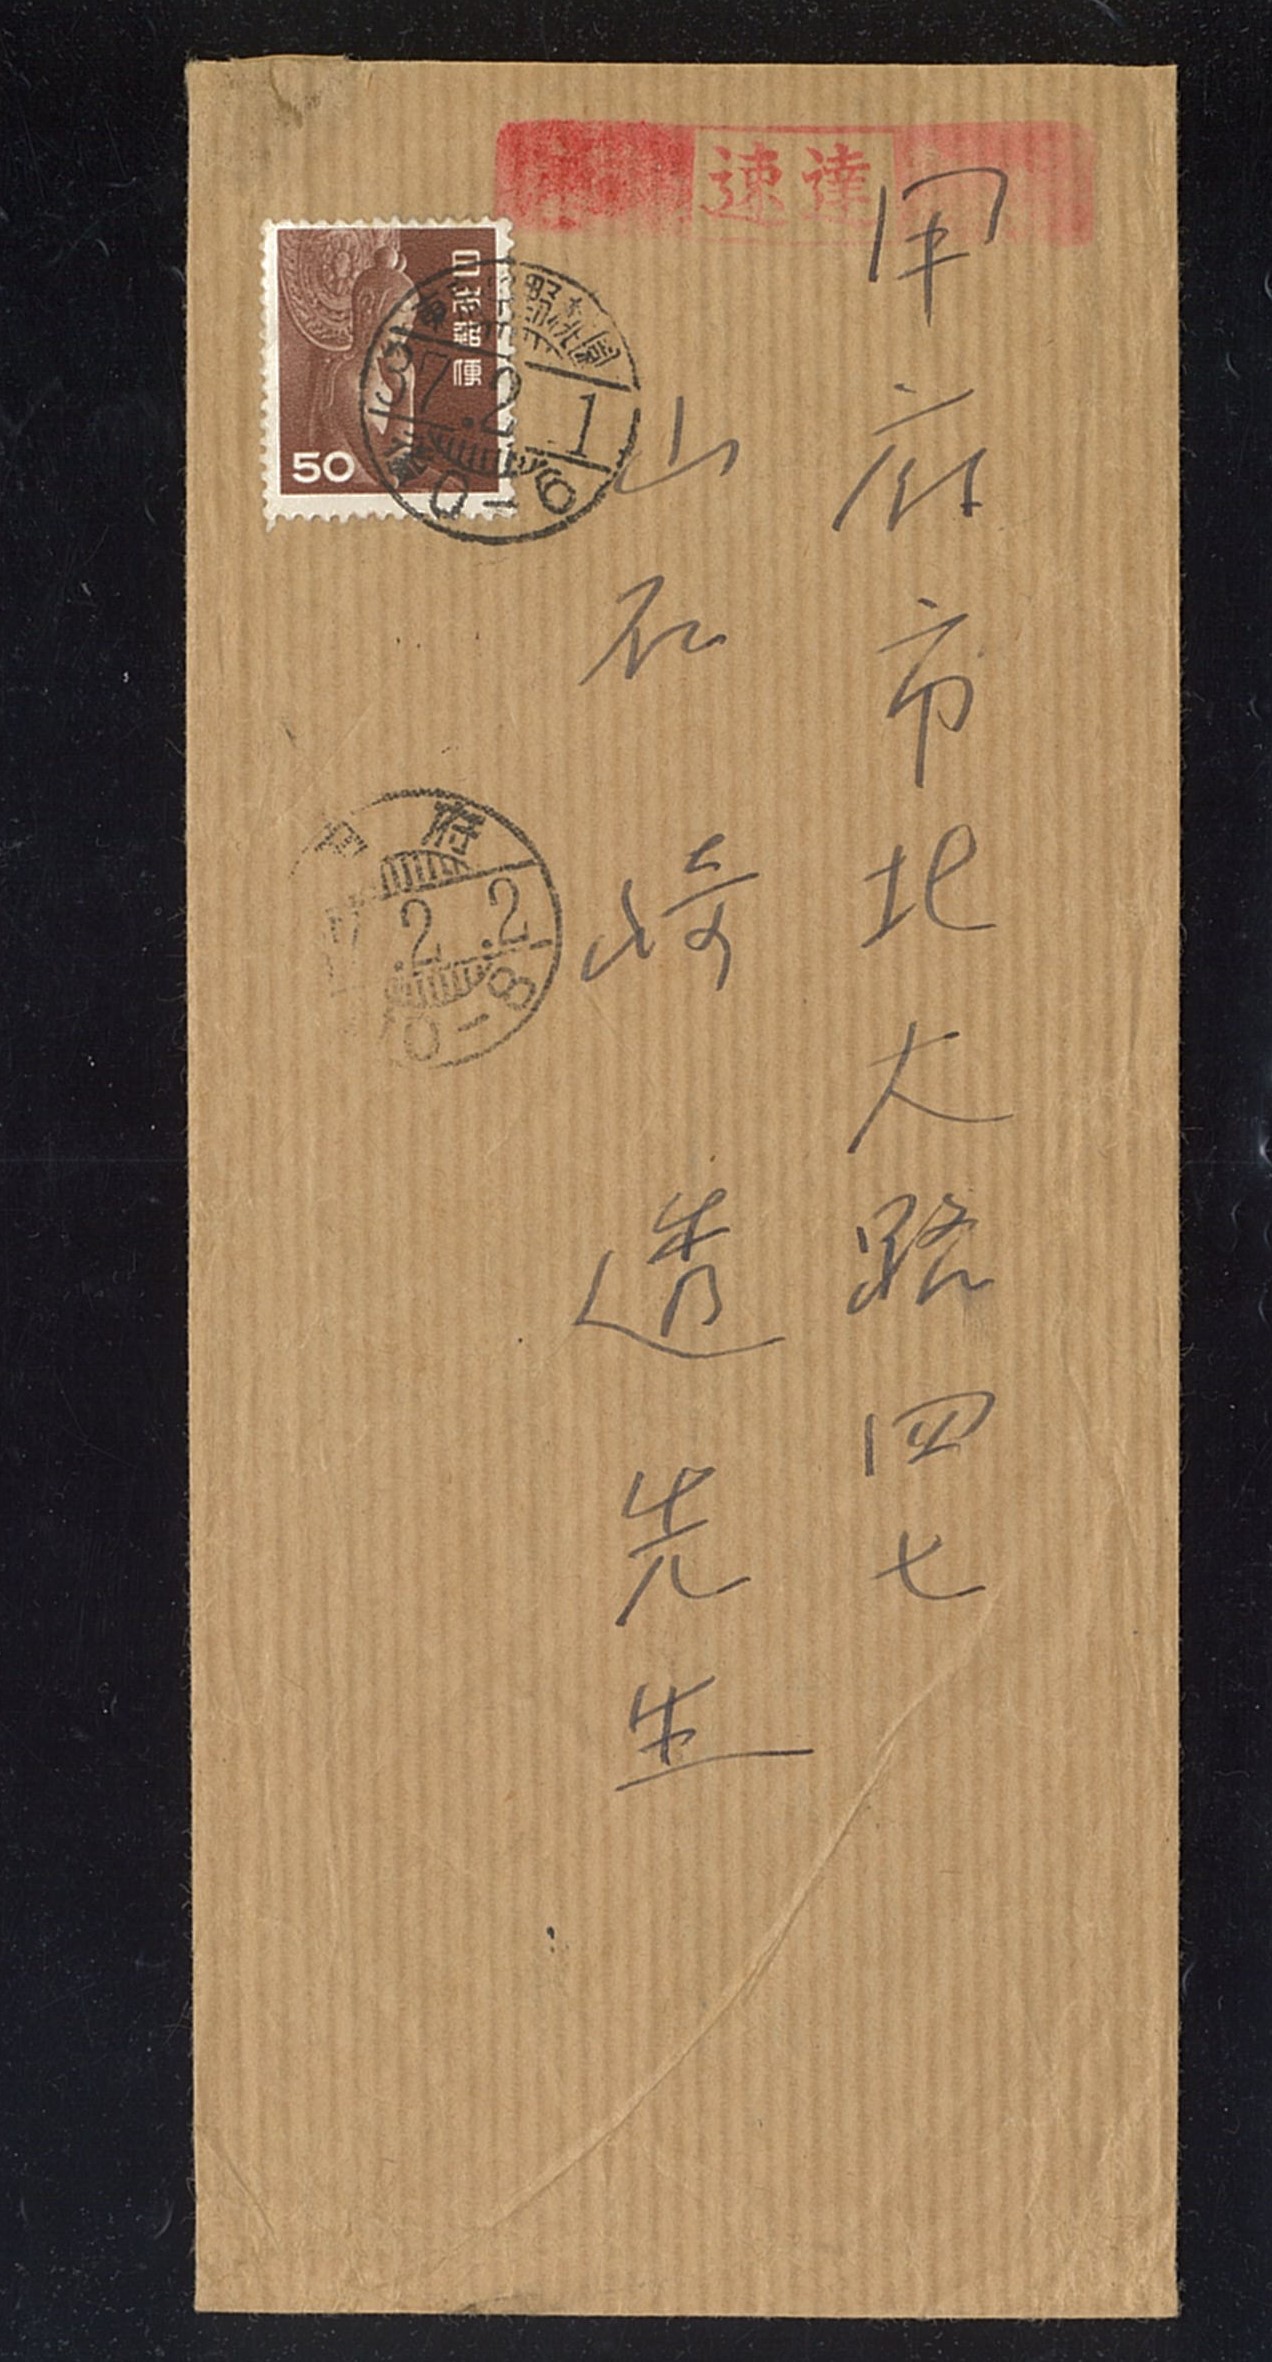 速達
甲府市北大路四七
山石崎透先生
日本郵便
50
37.2.1
0-6
甲府
7.2.2
0-8